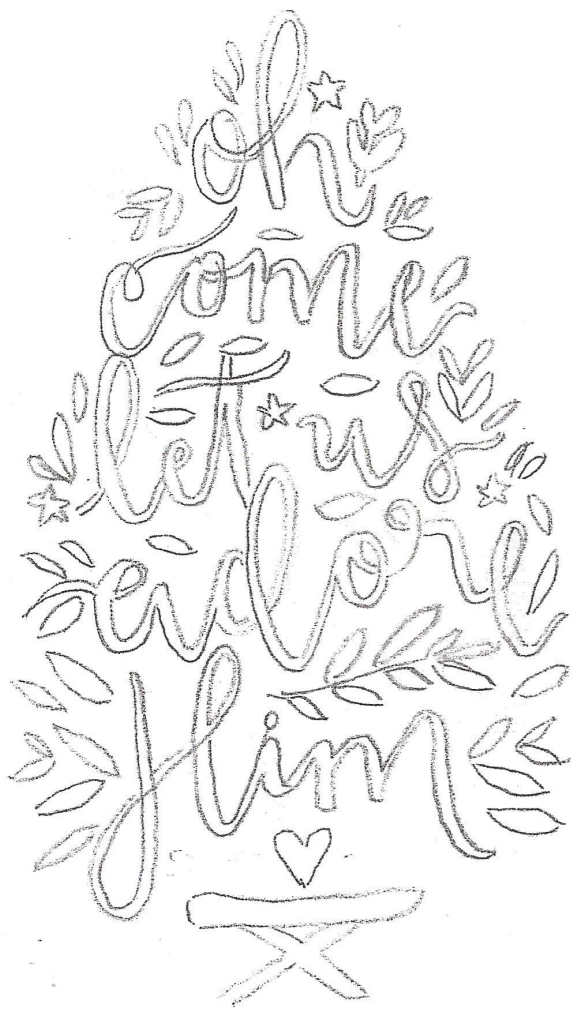 oh
come
let us
adore
Him